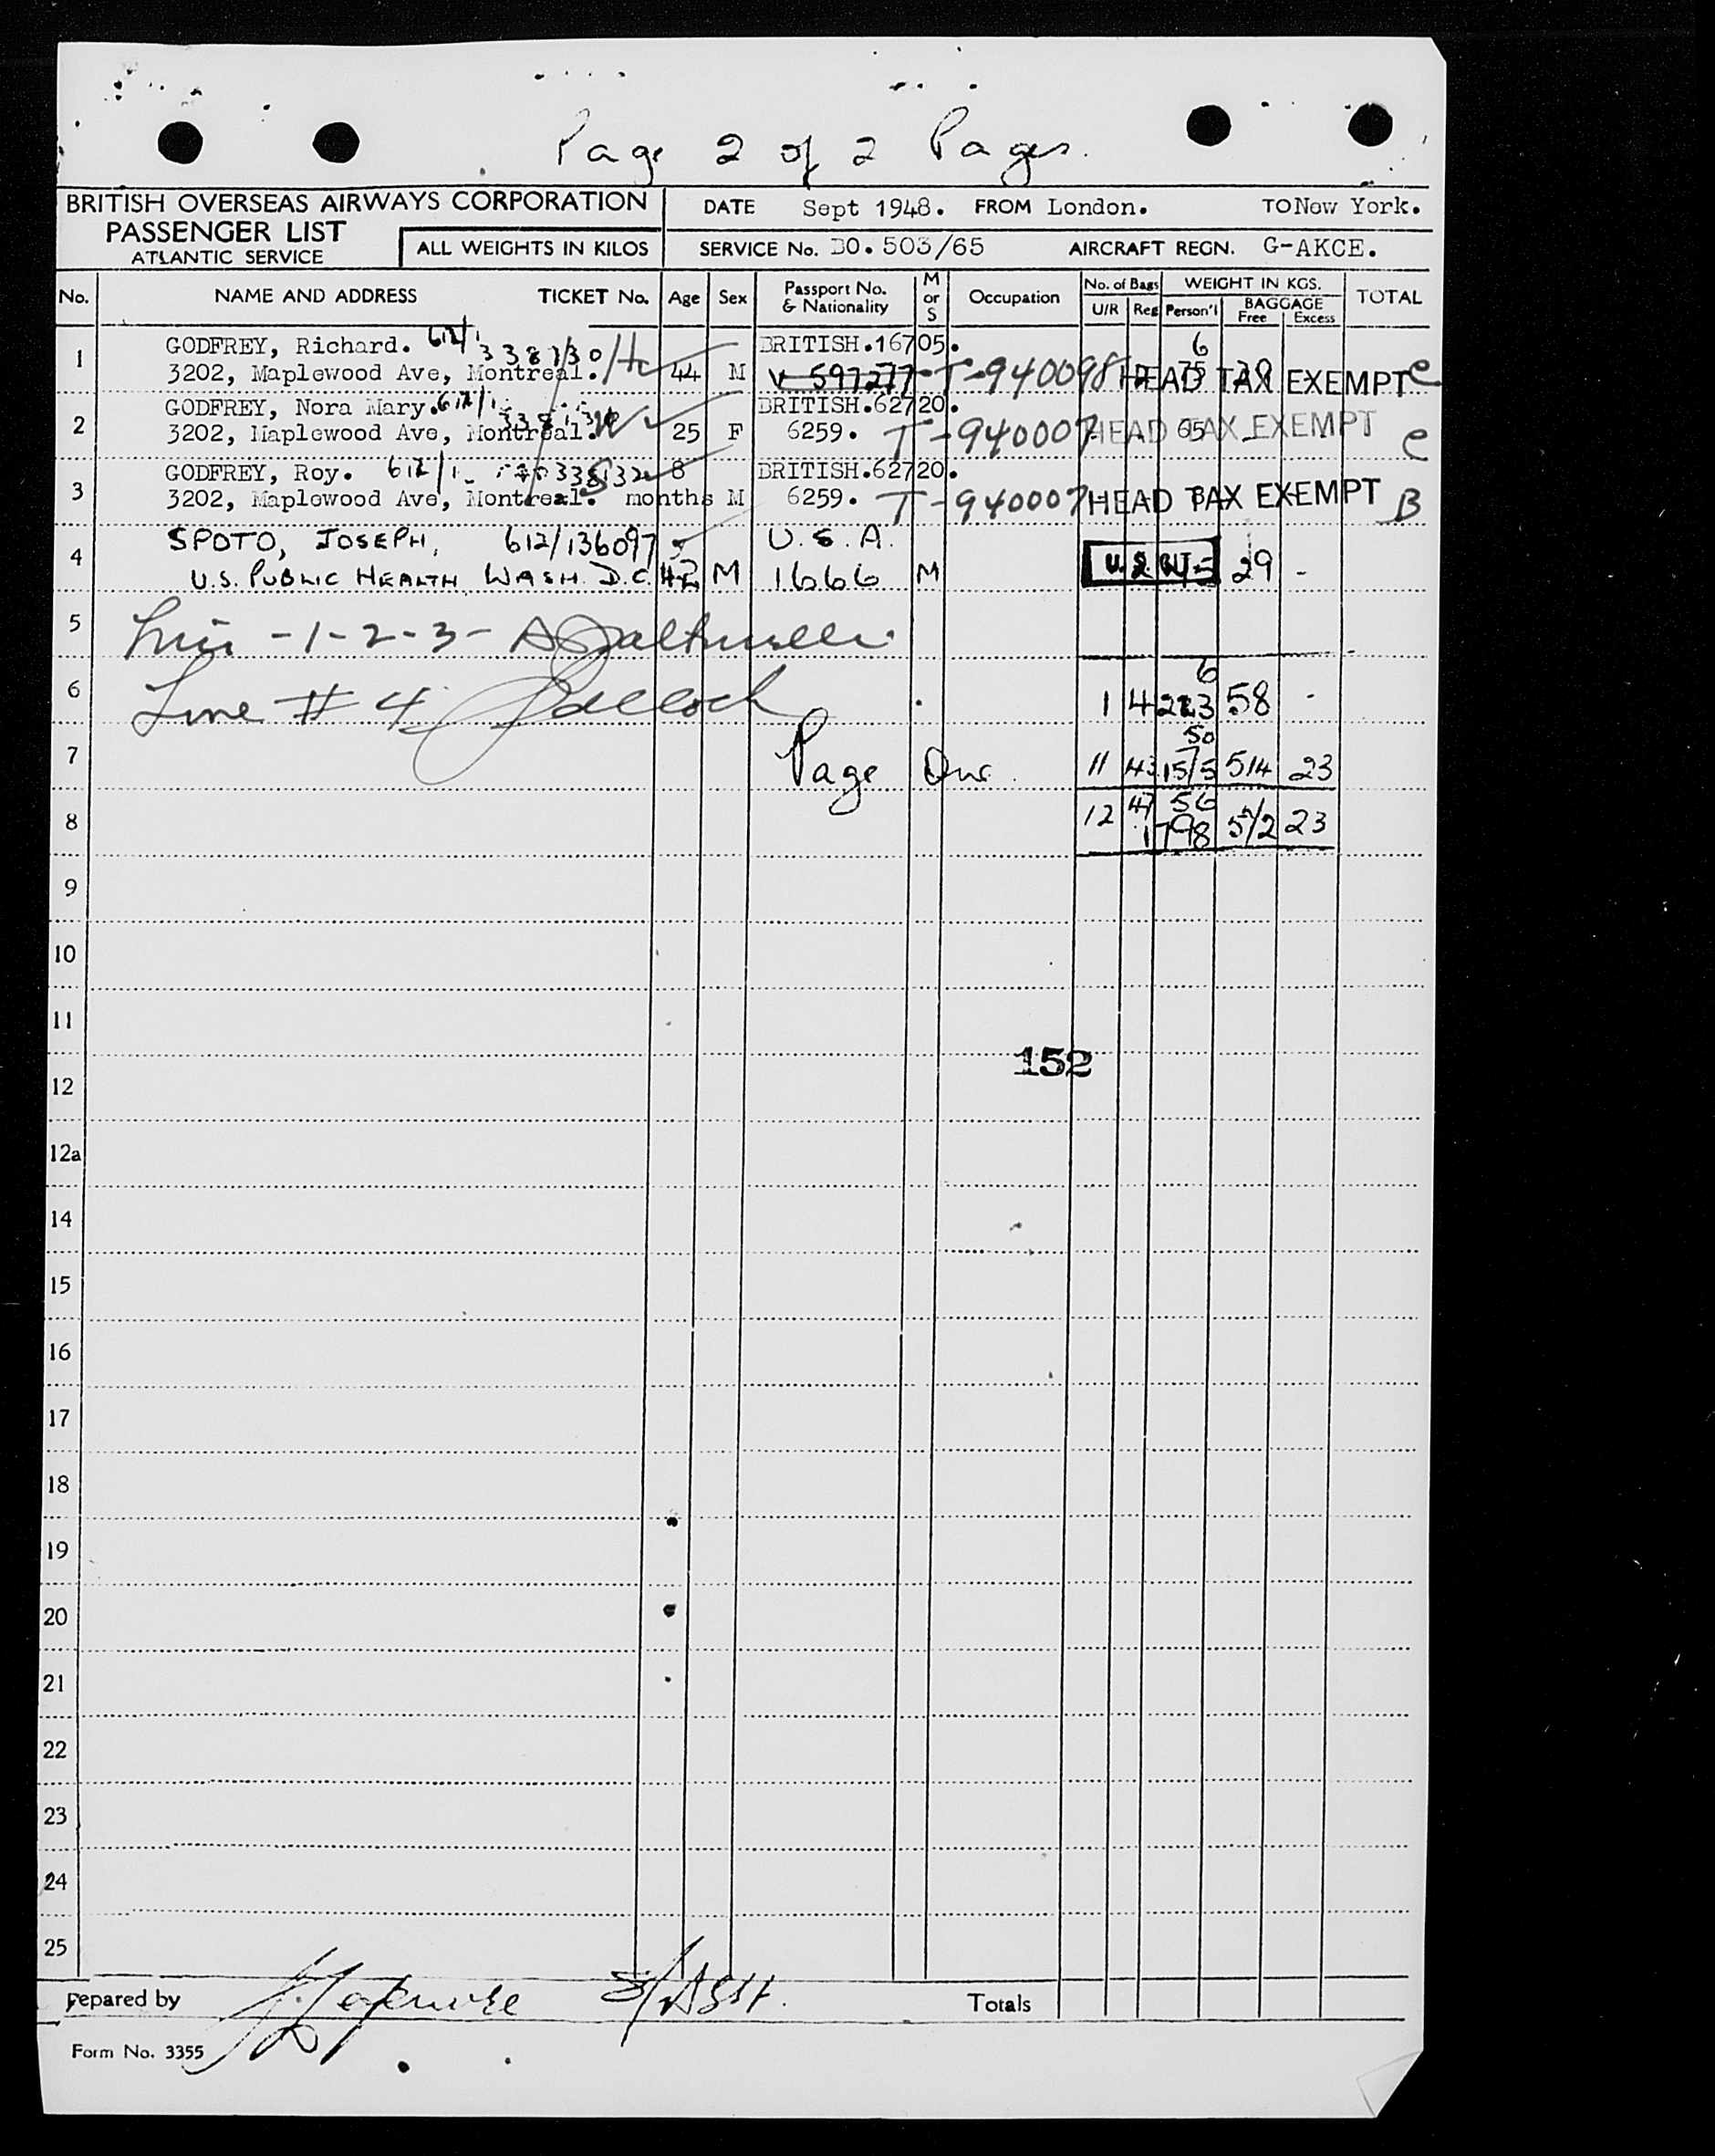 Page 2 of 2 Pages.
BRITISH OVERSEAS AIRWAYS CORPORATION
PASSENGER LIST
ATLANTIC SERVICE
ALL WEIGHTS IN KILOS
DATE Sept 1948. FROM London. TO New York.
SERVICE No. BO.503/65 AIRCRAFT REGN. G-AKCE.
No. NAME AND ADDRESS TICKET No. Age Sex Passport No. & Nationality M or S Occupation No. of Bags U/R Reg WEIGHT IN KGS. Person'l BAGGAGE Free Excess TOTAL
1 GODFREY, Richard. 612/1 338130 BRITISH.16705. 6
3202, Maplewood Ave, Montreal. 44 M V 597277 T-940098 75 HEAD TAX EXEMPT e
2 GODFREY, Nora Mary. 612/1 BRITISH.62720.
3202, Maplewood Ave, Montreal. W 25 F 6259. T-940007 65 HEAD TAX EXEMPT e
3 GODFREY, Roy. 612/1 338132 8 BRITISH.62720.
3202, Maplewood Ave, Montreal. months M 6259. T-940007 HEAD TAX EXEMPT B
4 SPOTO, JOSEPH, 612/136097 U.S.A.
U.S. PUBLIC HEALTH WASH. D.C. 42 M 1666 M 29 -
5 -1-2-3-
6 Line # 4 6
1 4 223 58 -
7 Page One. 50
11 43 1575 514 23
8 12 47 56
1798 572 23
9
10
11
152
12
12a
14
15
16
17
18
19
20
21
22
23
24
25
Prepared by Totals
Form No. 3355